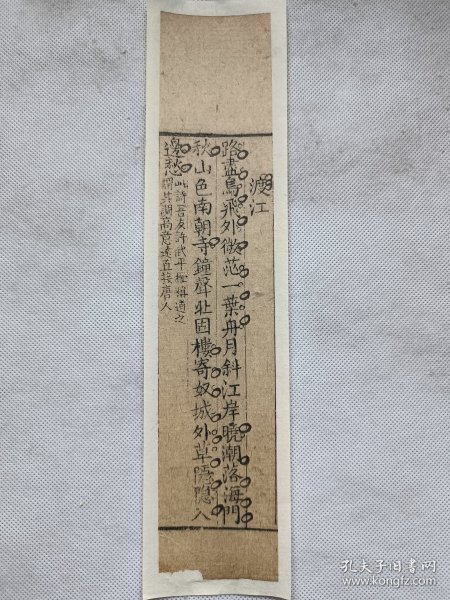 渡江
路盡鳥飛外微茫一葉舟月斜江岸曉潮落海門
秋山色南朝寺鐘聲北固樓寄奴城外草隱隱入
邊愁
此詩吾友許武平極填適之
謂其調高意遠直接唐人
孔夫子旧书网
www.kongfz.com